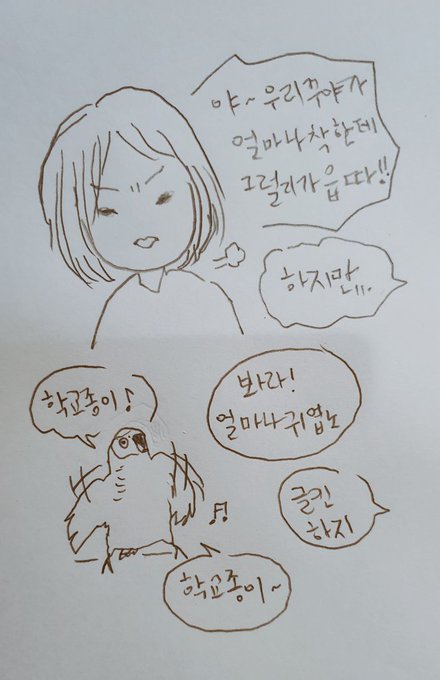 야~ 우리꾸야가
얼마나착한데
그럴리가 읍따!!
하지만...
학교종이♪
봐라!
얼마나귀엽노
글킨
하지
학교종이~